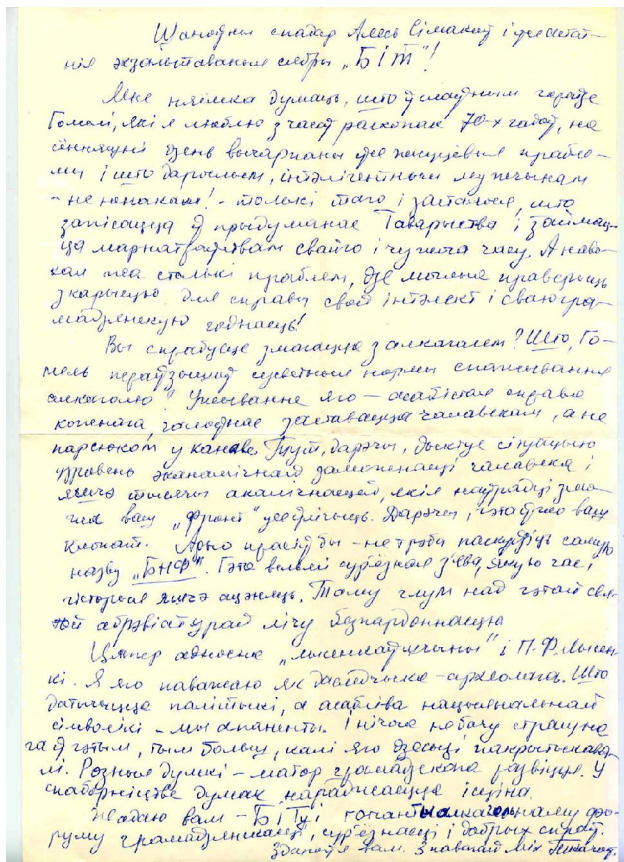 Шаноўны спадар Алесь Сімакоў і усе астат-
нія экзальтаваныя сябры „БІТ"!
Мне няёмка думаць, што ў слаўным горадзе
Гомелі, які я люблю з часоў раскопак 70-х гадоў, на
сённяшні дзень вычарпаны ўсе жыццёвыя прабле-
мы і што дарослым, інтэлігентным мужчынам
- не юнакам! - толькі таго і засталося, што
запісацца ў прыдуманае Таварыства і займац-
ца марнатраўствам свайго і чужога часу. А навo-
кал нас столькі праблем, дзе можна праверыць
з карысцю для справы свой інтэлект і сваю гра-
мадзянскую годнасць!
Вы спрабуеце змагацца з алкаголем? Што, Го-
мель перавысіў сусветныя нормы спажывання
алкаголю? Ужыванне яго - асабістая справа
кожнага, галоўнае заставацца чалавекам, а не
парсюком у канаве. Тут, дарэчы, дыктуе сітуацыю
узровень эканамічнай заможнасці чалавека і
яшчэ тысячы акалічнасцей, якія наўрадці змо-
жа ваш „фронт" улічыць. Дарэчы, гэта ўжо ваш
клопат. Адно прасіў бы - не трэба паскудзіць самую
назву „БНФ". Гэта вельмі сур'ёзная з'ява, якую час і
гісторыя яшчэ ацэняць. Таму глум над гэтай свя-
той абрэвіятурай лічу беспардоннасцю.
Цяпер адносна „лысенкаўшчыны" і П.Ф. Лысен-
кі. Я яго паважаю як даследчыка-археолага. Што
датычыцца палітыкі, а асабліва нацыянальнай
сімволікі - мы апаненты. І нічога не бачу страшна-
га ў гэтым, тым больш, калі яго дзесьці пакрытыкава-
лі. Розныя думкі - матор грамадскага развіцця. У
спаборніцтве думак нараджаецца ісціна.
Жадаю вам - БІТу і антыалкагольнаму фо-
руму грамадзянскасці, сур'ёзнасці і добрых спраў.
Здароўя вам. З павагай Міх. Ткачоў.